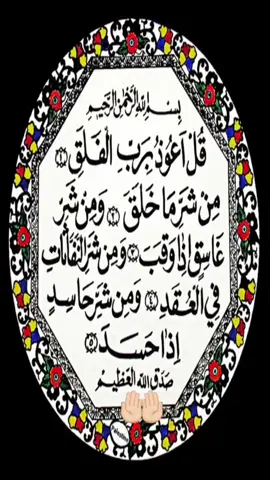 بِسْمِ اللهِ الرَّحْمٰنِ الرَّحِيْمِ
قُلْ اَعُوْذُ بِرَبِّ الْفَلَقِ ۙ۝۱
مِنْ شَرِّ مَا خَلَقَ ۙ۝۲ وَمِنْ شَرِّ
غَاسِقٍ اِذَا وَقَبَ ۙ۝۳ وَمِنْ شَرِّ النَّفّٰثٰتِ
فِي الْعُقَدِ ۙ۝۴ وَمِنْ شَرِّ حَاسِدٍ
اِذَا حَسَدَ ۝۵
صَدَقَ اللهُ الْعَظِيْمُ